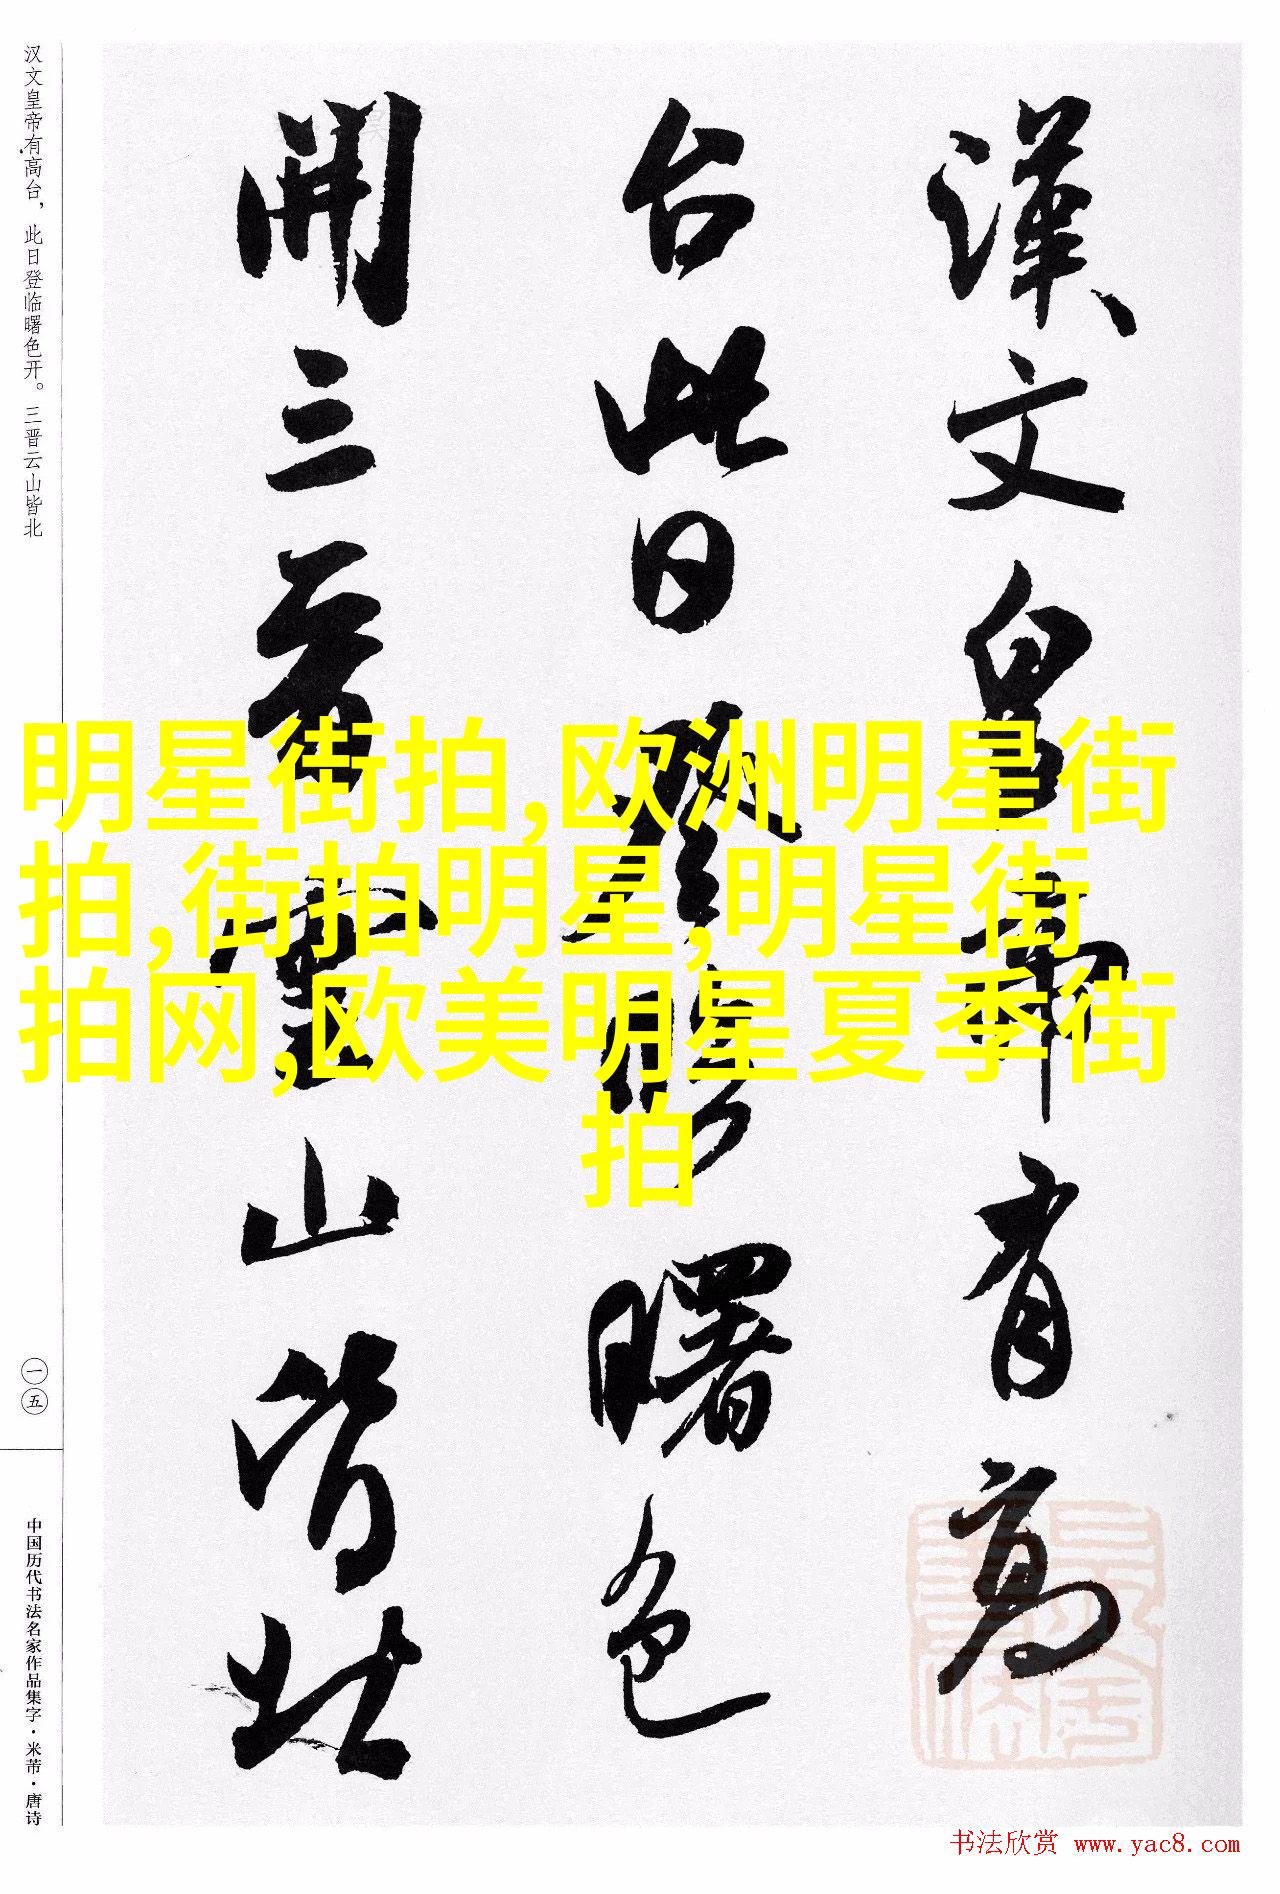 漢文皇帝有高
台此日登臨曙色
開三晉雲山皆北
汉文皇帝有高台，此日登临曙色开。三晋云山皆北
一五
中国历代书法名家作品集字·米芾·唐诗
明星街拍,欧洲明星街
拍,街拍明星,明星街
拍网,欧美明星夏季街
拍
书法欣赏 www.yac8.com